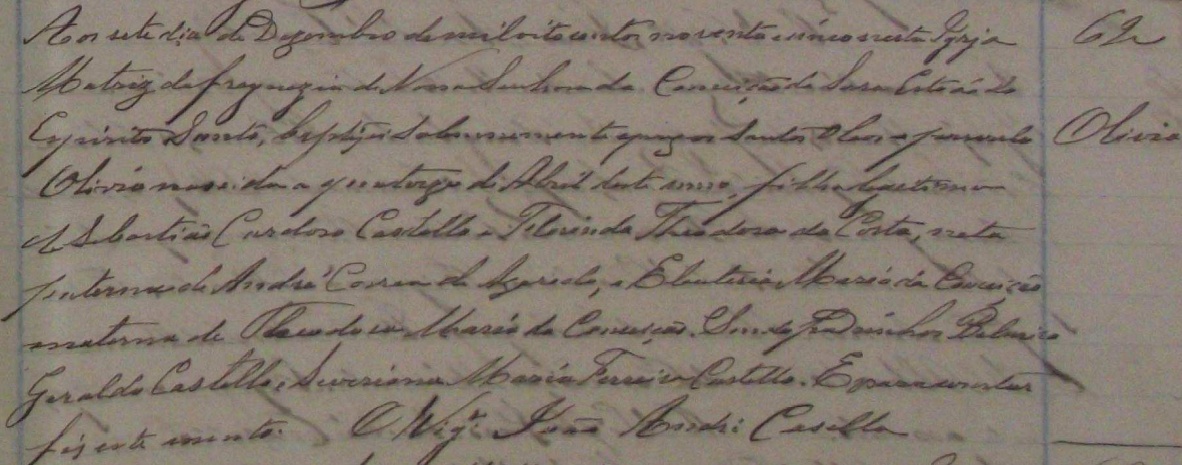 Aos sete dia de Dezembro de mil oitocentos noventa e cinco nesta Igrja 62
Matriz da freguezia de Nossa Senhora da Conceição da Serra Estado do
Espirito Santo, baptizei Solemnemente e puz os Santos Oleos a parvula Olivia
Olivia nascida a quatorze de Abril deste anno, filha legitima
de Sebastião Cardoso Castello e Florinda Theodora da Costa, neta
paterna de André Correa de Azeredo, e Eleuteria Maria da Conceição
materna de Theodora Maria da Conceição. Sendo padrinhos
Geraldo Castello e Severiana Maria Ferreira Castello. E para constar
fis este assento. O Vigr.º João André Casella